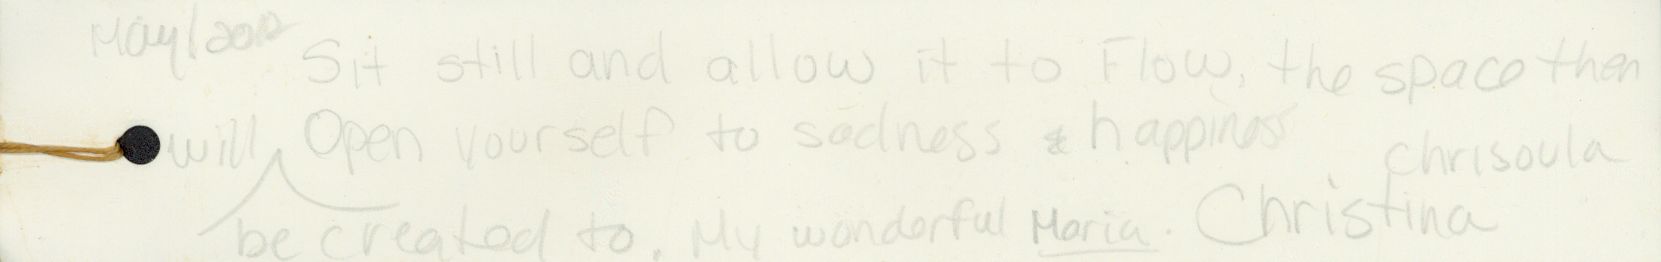 May/2012
Sit still and allow it to Flow, the space then
will Open yourself to sadness & happiness
chrisoula
be created to. My wonderful Maria. Christina